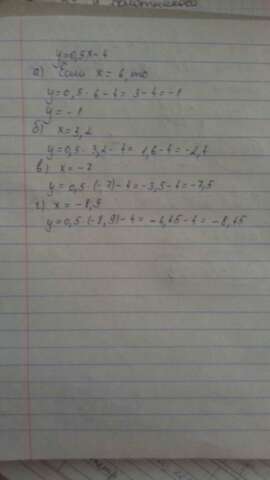 y=0,5x-4
а) Если x = 6, то
y=0,5 · 6 - 4 = 3-4 = -1
y = -1
б) x=3,2
y=0,5 · 3,2 - 4 = 1,6-4=-2,4
в) x = -7
y= 0,5 · (-7)-4=-3,5-4=-7,5
г) x = -8,9
y=0,5 · (-8,9)-4= -4,45-4 = -8,45